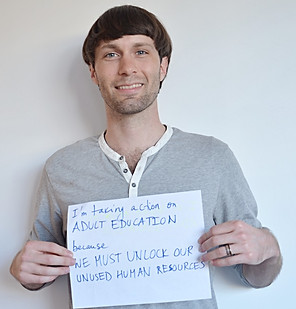 I'm taking action on
ADULT EDUCATION
because
WE MUST UNLOCK OUR
UNUSED HUMAN RESOURCES